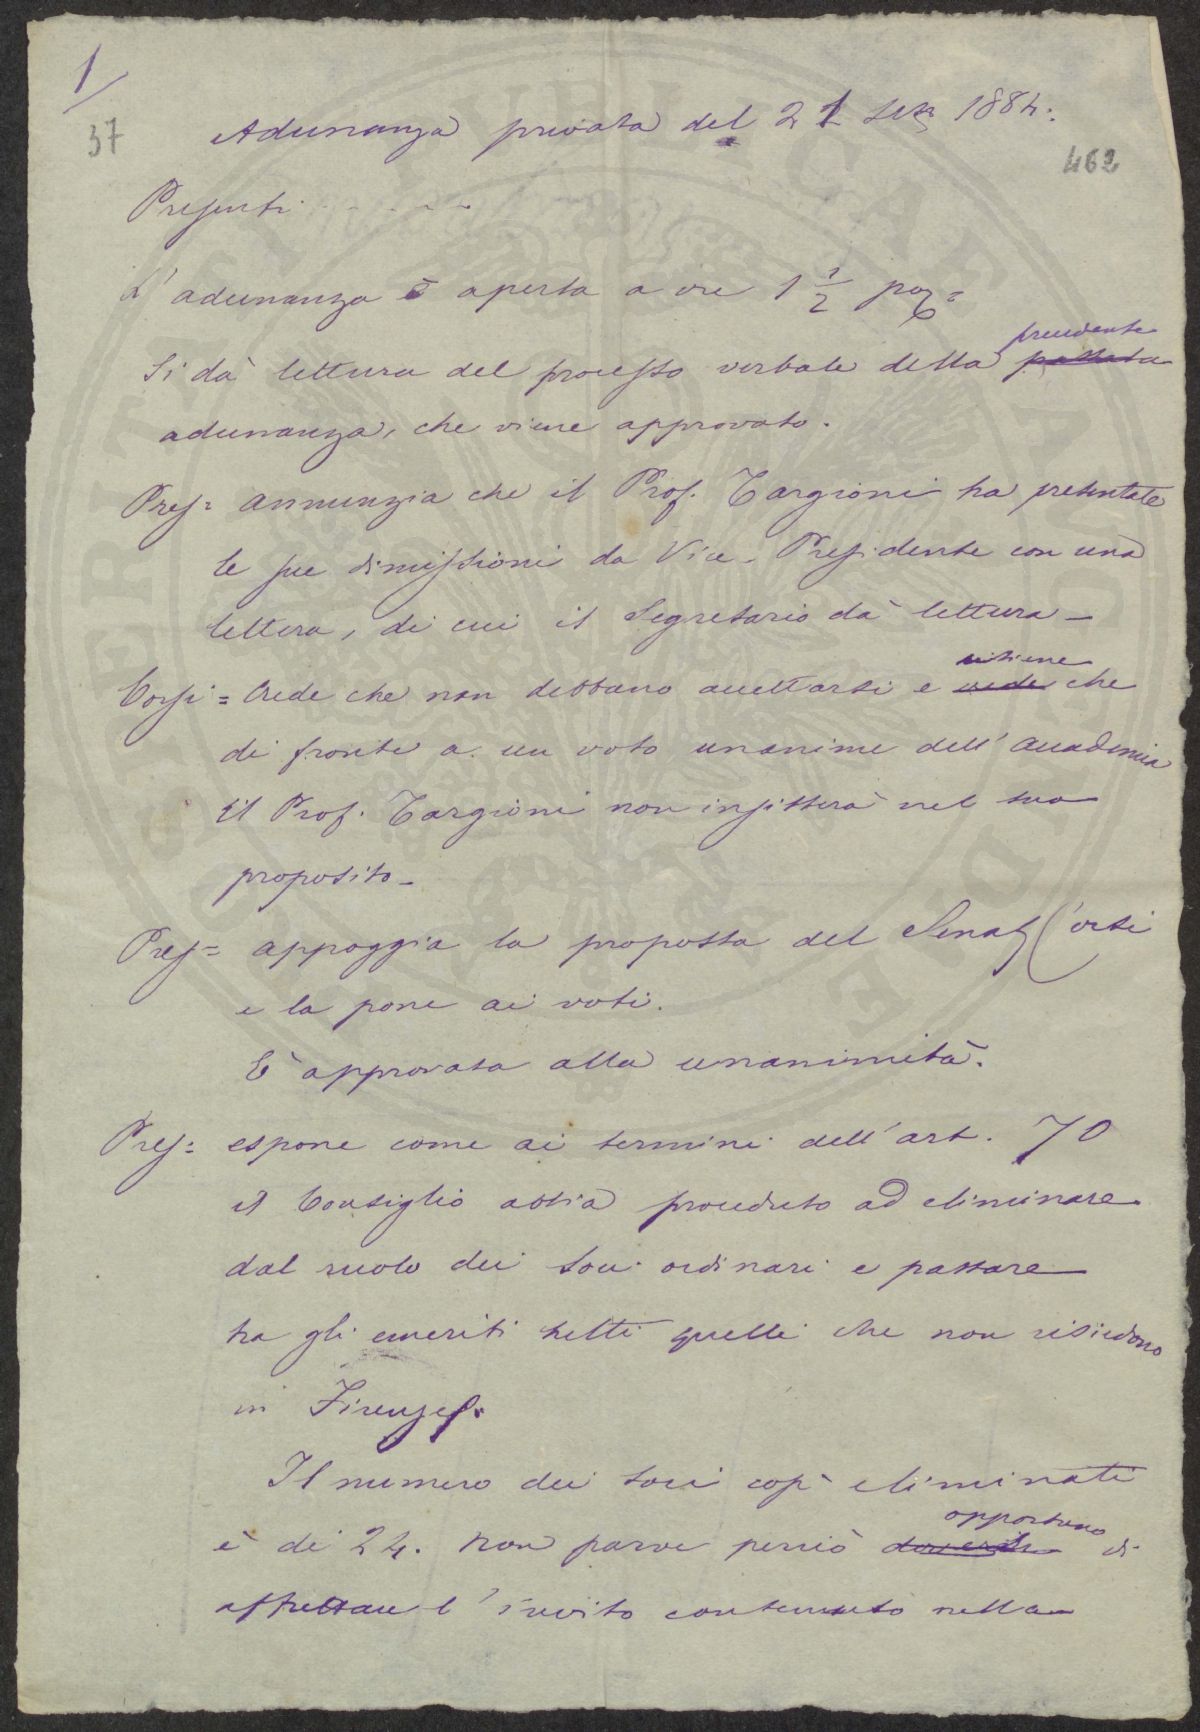 1/
37
462
Adunanza privata del 21 1884.
Presenti . . . . . .
L'adunanza è aperta a ore 1 1/2 pom=
Si dà lettura del processo verbale della passata precedente
adunanza, che viene approvato.
Pres= annunzia che il Prof. Targioni ha presentate
le sue dimissioni da Vice-Presidente con una
lettera, di cui il Segretario dà lettura -
Corsi = Crede che non debbano accettarsi e crede ritiene che
di fronte a un voto unanime dell'Accademia
il Prof. Targioni non insisterà nel suo
proposito -
Pres= appoggia la proposta del Senat Corsi
e la pone ai voti.
È approvata alla unanimità.
Pres= espone come ai termini dell'art. 70
il Consiglio abbia proceduto ad eliminare
dal ruolo dei soci ordinari e passare
tra gli emeriti tutti quelli che non risiedono
in Firenze.
Il numero dei soci così eliminati
è di 24. Non parve perciò opportuno di
affrettare l'invito contenuto nella